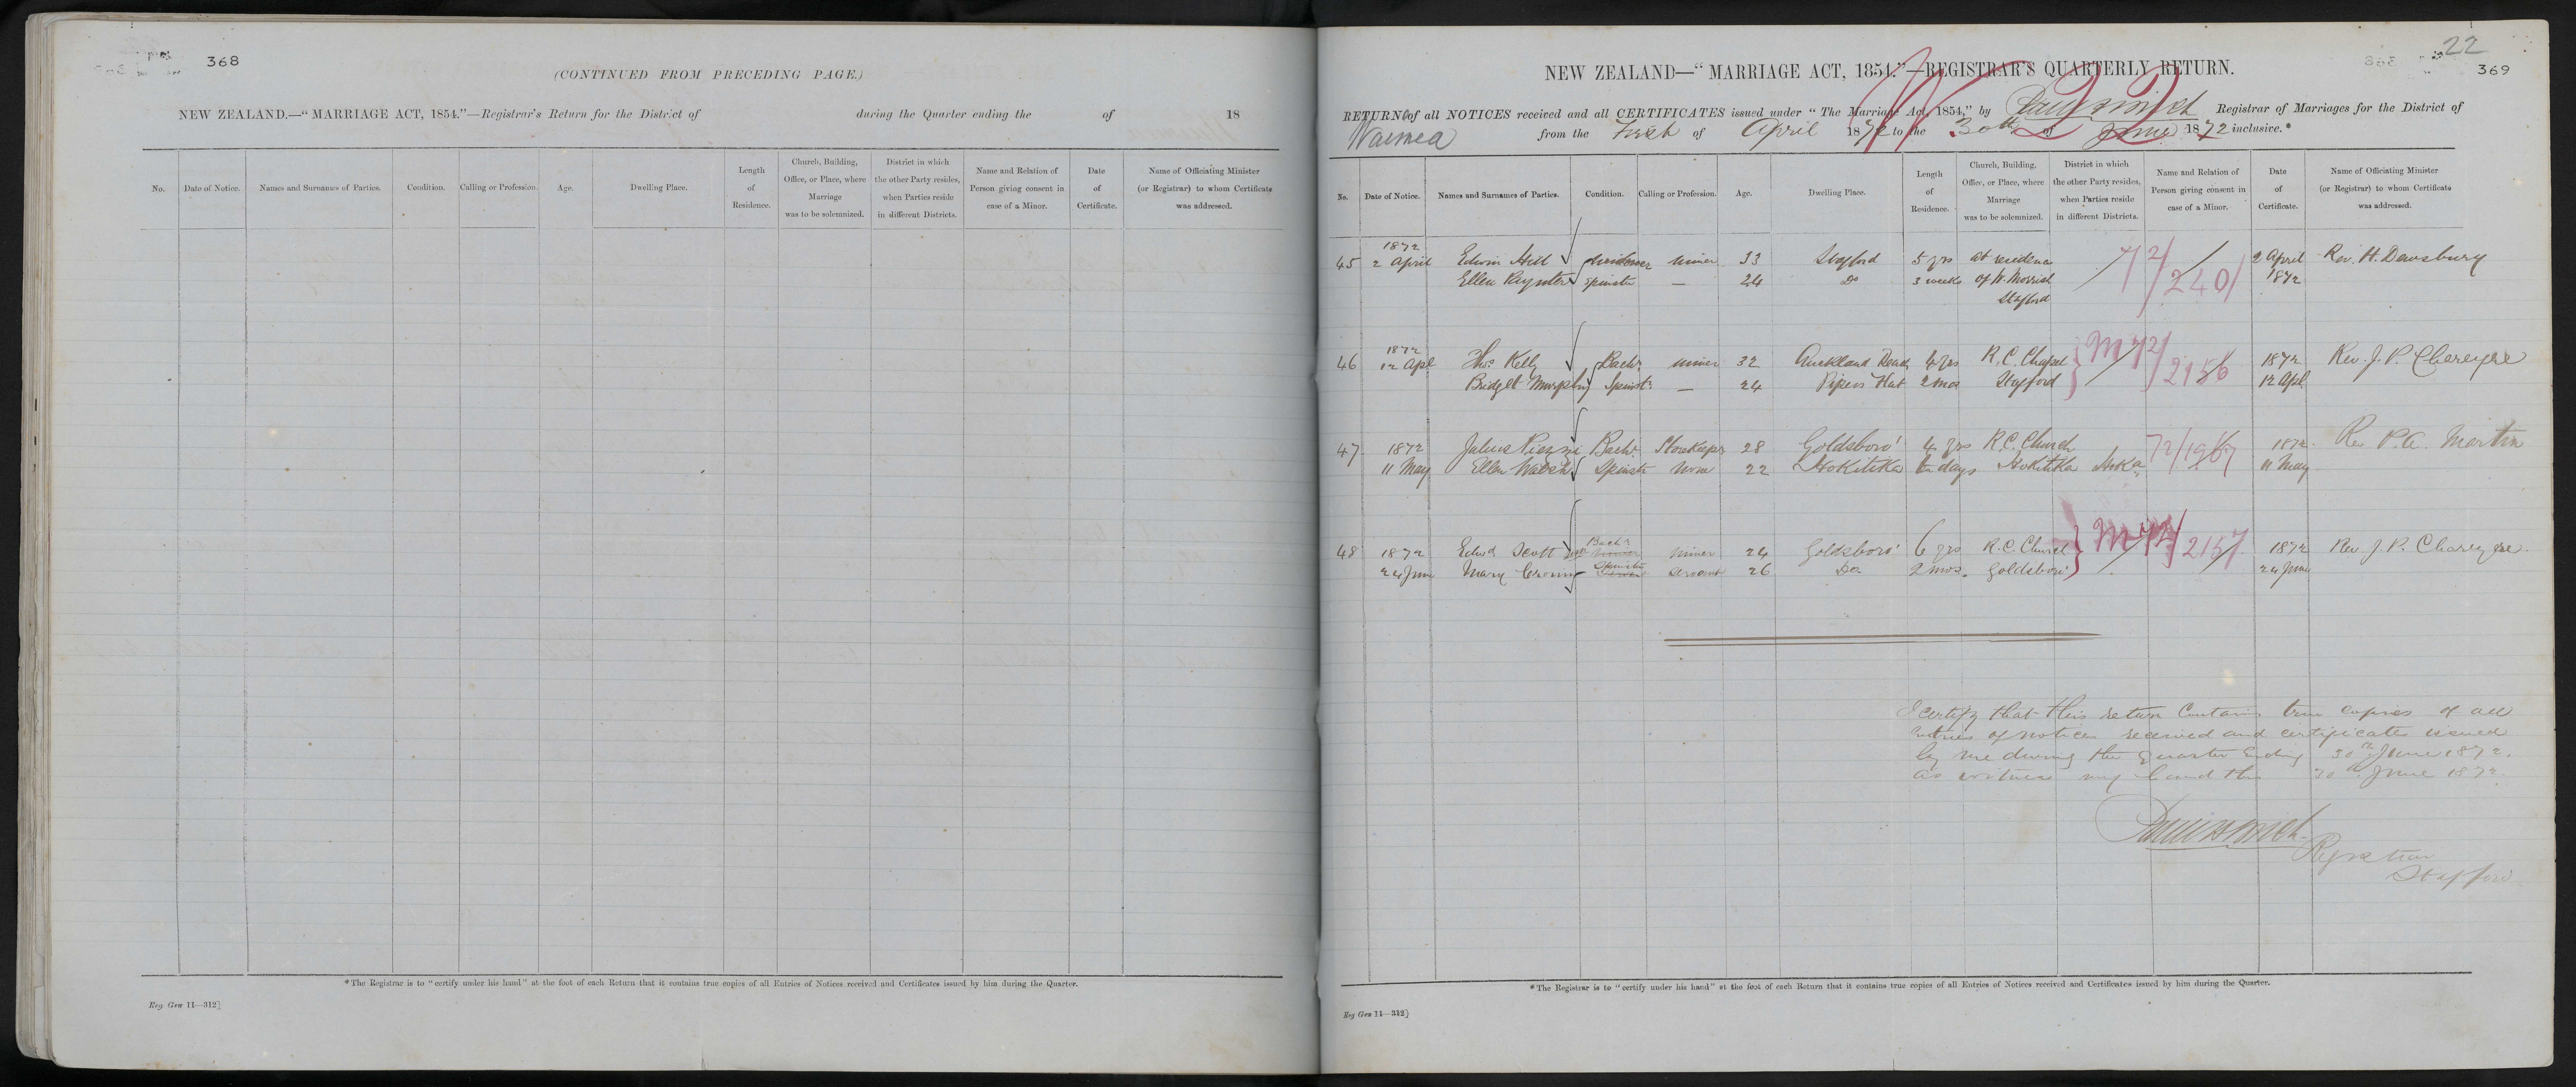 368
(CONTINUED FROM PRECEDING PAGE.)
NEW ZEALAND.—"MARRIAGE ACT, 1854."—Registrar's Return for the District of during the Quarter ending the of 18
No. Date of Notice. Names and Surnames of Parties. Condition. Calling or Profession. Age. Dwelling Place. Length of Residence. Church, Building, Office, or Place, where Marriage was to be solemnized. District in which the other Party resides, when Parties reside in different Districts. Name and Relation of Person giving consent in case of a Minor. Date of Certificate. Name of Officiating Minister (or Registrar) to whom Certificate was addressed.
*The Registrar is to "certify under his hand" at the foot of each Return that it contains true copies of all Entries of Notices received and Certificates issued by him during the Quarter.
Reg Gen 11—312]
22
369
NEW ZEALAND—"MARRIAGE ACT, 1854."—REGISTRAR'S QUARTERLY RETURN.
RETURN of all NOTICES received and all CERTIFICATES issued under "The Marriage Act, 1854," by Registrar of Marriages for the District of
Waimea from the First of April 1872 to the 30th of June 1872 inclusive.*
No. Date of Notice. Names and Surnames of Parties. Condition. Calling or Profession. Age. Dwelling Place. Length of Residence. Church, Building, Office, or Place, where Marriage was to be solemnized. District in which the other Party resides, when Parties reside in different Districts. Name and Relation of Person giving consent in case of a Minor. Date of Certificate. Name of Officiating Minister (or Registrar) to whom Certificate was addressed.
1872
45 2 April Edwin Hill Widower Miner 33 Stafford 5 yrs at residence 72/2401 2 April Rev. H. Dewsbury
Ellen Spinster — 24 Do 3 weeks of W. 1872
Stafford
1872
46 12 Apl Thos Kelly Bachr Miner 32 Auckland Road 4 yrs R.C. Chapel M 72/2156 1872 Rev. J. P. Chareyre
Bridget Murphy Spinstr — 24 Pipers Flat 2 mos Stafford 12 Apl
47 1872 Julius Bachr Storekeeper 28 Goldsboro' 4 yrs R.C. Church 72/1967 1872 Rev P. A. Martin
11 May Ellen Walsh Spinstr None 22 Hokitika days Hokitika Hoka 11 May
Bachr
48 1872 Edwd Scott Miner 24 Goldsboro' 6 yrs R.C. Church M 72/2157 1872 Rev. J. P. Chareyre.
Spinster
24 June Mary Cronin Servant 26 Do 2 mos. Goldsboro' 24 June
I certify that this return Contains true copies of all
Entries of notices received and certificates issued
by me during the quarter Ending 30th June 1872.
as witness my hand this 30th June 1872.
Registrar
Stafford
*The Registrar is to "certify under his hand" at the foot of each Return that it contains true copies of all Entries of Notices received and Certificates issued by him during the Quarter.
Reg Gen 11—312]